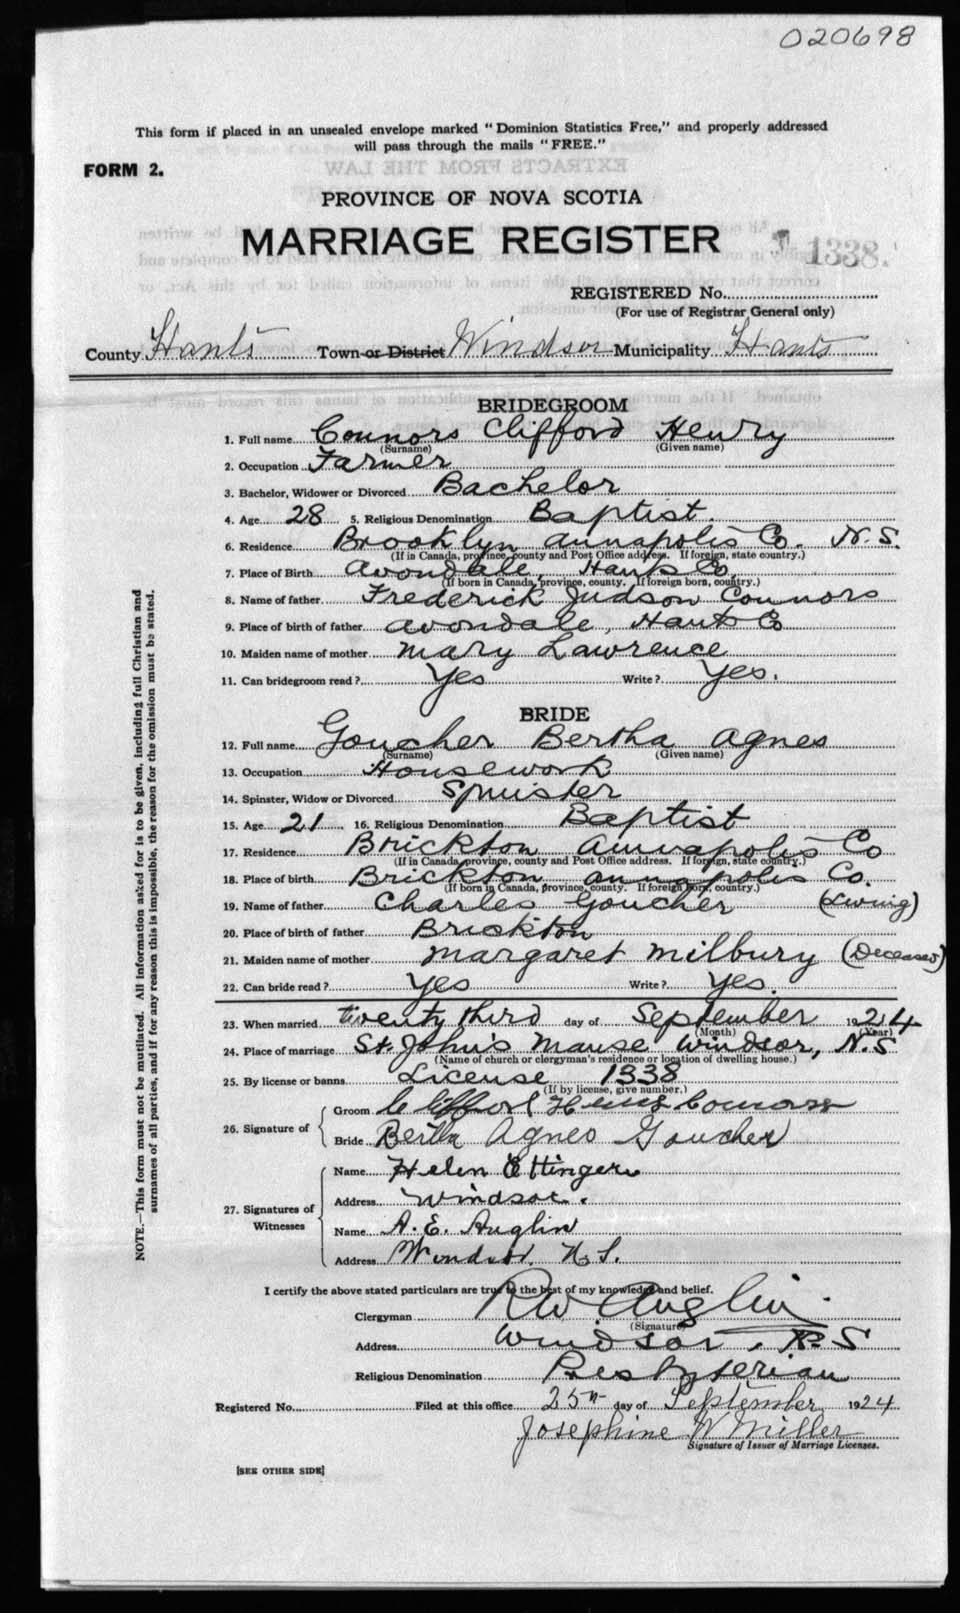 020698
This form if placed in an unsealed envelope marked "Dominion Statistics Free," and properly addressed
will pass through the mails "FREE."
EXTRACTS FROM THE LAW
FORM 2.
PROVINCE OF NOVA SCOTIA
MARRIAGE REGISTER
1338.
REGISTERED No.
(For use of Registrar General only)
County Hants Town or District Windsor Municipality Hants
BRIDEGROOM
1. Full name Connors Clifford Henry
(Surname) (Given name)
2. Occupation Farmer
3. Bachelor, Widower or Divorced Bachelor
4. Age 28 5. Religious Denomination Baptist.
6. Residence Brooklyn Annapolis Co. N.S.
(If in Canada, province, county and Post Office address. If foreign, state country.)
7. Place of Birth Avondale, Hants Co.
(If born in Canada, province, county. If foreign born, country.)
8. Name of father Frederick Judson Connors
9. Place of birth of father Avondale, Hants Co
10. Maiden name of mother Mary Lawrence
11. Can bridegroom read? Yes Write? Yes.
BRIDE
12. Full name Goucher Bertha Agnes
(Surname) (Given name)
13. Occupation Housework
14. Spinster, Widow or Divorced Spinster
15. Age 21 16. Religious Denomination Baptist
17. Residence Brickton Annapolis Co
(If in Canada, province, county and Post Office address. If foreign, state country.)
18. Place of birth Brickton Annapolis Co.
(If born in Canada, province, county. If foreign born, country.)
19. Name of father Charles Goucher (Living)
20. Place of birth of father Brickton
21. Maiden name of mother Margaret Milbury (Deceased)
22. Can bride read? Yes Write? Yes.
23. When married twenty third day of September 1924
(Month) (Year)
24. Place of marriage St. John's Manse Windsor, N.S
(Name of church or clergyman's residence or location of dwelling house.)
25. By license or banns License 1338
(If by license, give number.)
26. Signature of
Groom Clifford Henry Connors
Bride Bertha Agnes Goucher
27. Signatures of Witnesses
Name Helen Ettinger
Address Windsor.
Name A. E. Anglin
Address Windsor. N.S.
I certify the above stated particulars are true to the best of my knowledge and belief.
Clergyman R W Anglin
(Signature)
Address Windsor, N.S
Religious Denomination Presbyterian
Registered No. Filed at this office 25th day of September 1924
Josephine W Miller
Signature of Issuer of Marriage Licenses.
[SEE OTHER SIDE]
NOTE.—This form must not be mutilated. All information asked for is to be given, including full Christian and
surnames of all parties, and if for any reason this is impossible, the reason for the omission must be stated.